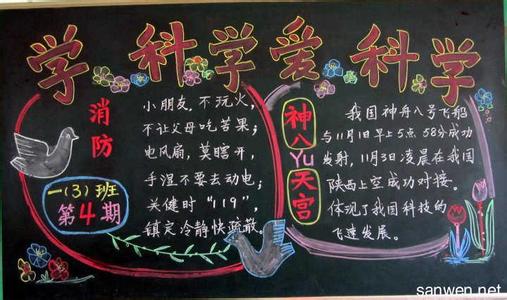 学科学爱科学
消防
小朋友,不玩火,
不让父母吃苦果;
电风扇,莫瞎开,
手湿不要去动电;
关健时"119",
镇定冷静快疏散。
一(3)班
第4期
神八Yu天宫
我国神舟八号飞船
与11月1日早上5点58分成功
发射,11月3凌晨在我国
陕西上空成功对接。
体现了我国科技的
飞速发展。
sanwen.net